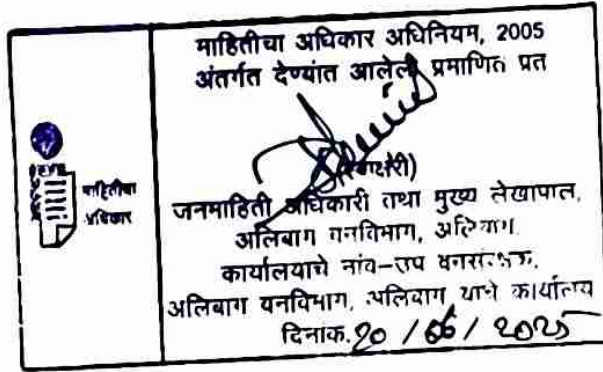 माहितीचा अधिकार अधिनियम, 2005
अंतर्गत देण्यांत आलेली प्रमाणित प्रत
माहितीचा
अधिकार
जनमाहिती अधिकारी तथा मुख्य लेखापाल,
अलिबाग वनविभाग, अलिबाग.
कार्यालयाचे नांव-उप वनसंरक्षक,
अलिबाग वनविभाग, अलिबाग यांचे कार्यालय
दिनांक. / 06 / 2025